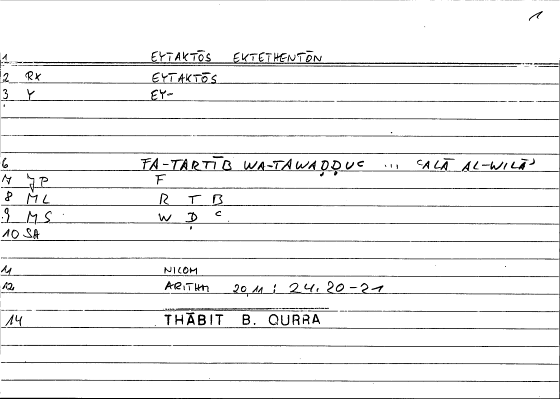 1
1 EYTAKTŌS EKTETHENTŌN
2 RX EYTAKTŌS
3 Y EY-
6 FA-TARTĪB WA-TAWAḌḌUʿ ... ʿALĀ AL-WILĀʾ
7 JP F
8 ML R T B
9 MS W Ḍ ʿ
10 SA
11 NICOM
12 ARITHM 20,11 : 24.20-21
14 THĀBIT B. QURRA